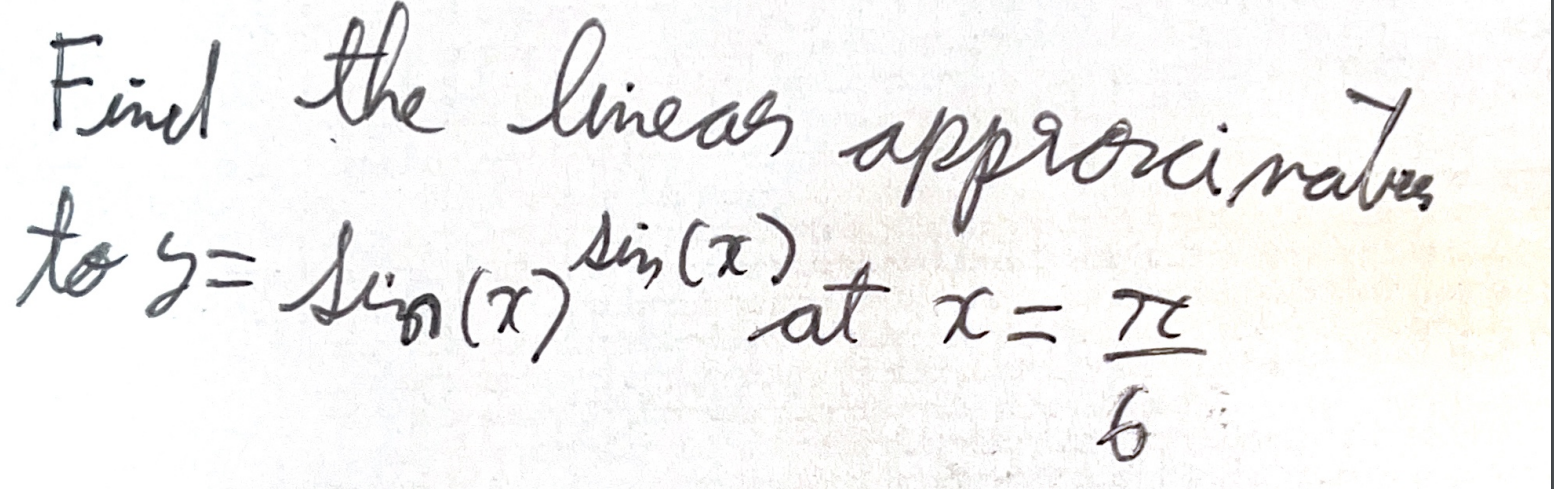 Find the linear approximation
to y = sin(x)^sin(x) at x = π/6